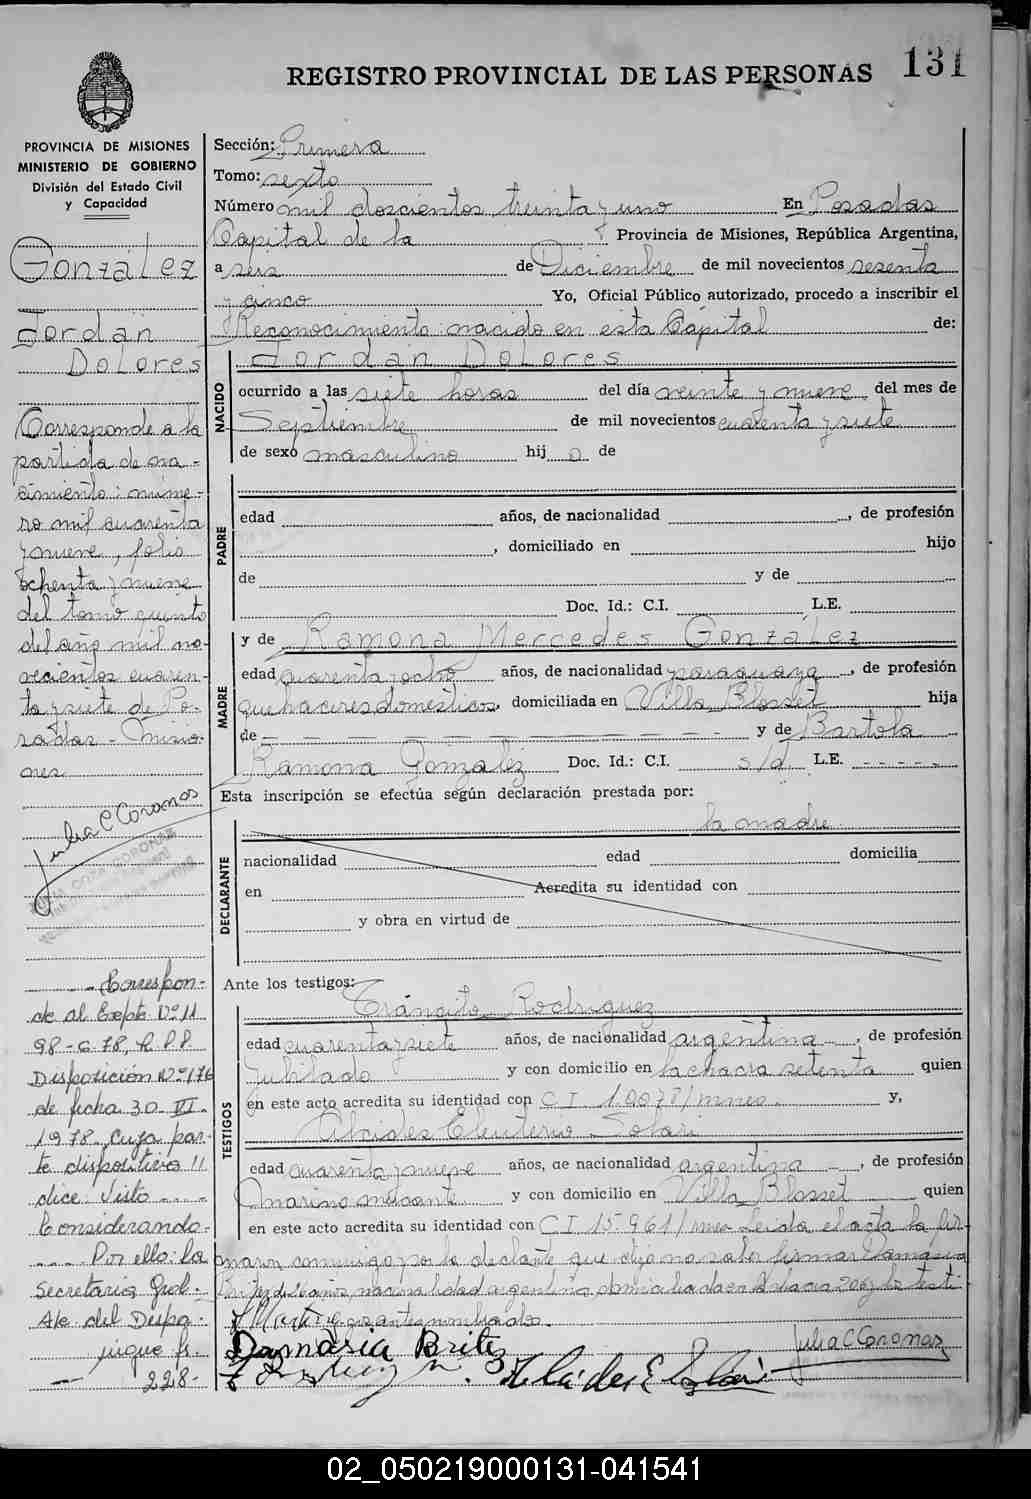 131
REGISTRO PROVINCIAL DE LAS PERSONAS
PROVINCIA DE MISIONES
MINISTERIO DE GOBIERNO
División del Estado Civil
y Capacidad
González
Jordán
Dolores
Corresponde a la
partida de na-
cimiento: núme-
ro mil cuarenta
y nueve, folio
ochenta y nueve
del tomo quinto
del año mil no-
vecientos cuaren-
ta y siete de Po-
sadas - Misio-
nes
Julia C Coronas
Correspon-
de al Expte Nº 11
98-G-78, R.P.P.
Disposición Nº 176
de fecha 30. III.
1978. Cuya par-
te dispositiva "
dice: Visto
Considerando-
Por ello: la
Secretaria Gral.
A/c del Despa-
228-
Sección: Primera
Tomo: sexto
Número mil doscientos treinta y uno En Posadas
Capital de la Provincia de Misiones, República Argentina,
a seis de Diciembre de mil novecientos sesenta
y cinco Yo, Oficial Público autorizado, procedo a inscribir el
Reconocimiento: nacido en esta Capital de:
NACIDO
Jordán Dolores
ocurrido a las siete horas del día veinte y nueve del mes de
Septiembre de mil novecientos cuarenta y siete
de sexo masculino hij o de
PADRE
edad años, de nacionalidad , de profesión
, domiciliado en hijo
de y de
Doc. Id.: C.I. L.E.
MADRE
y de Ramona Mercedes González
edad cuarenta y ocho años, de nacionalidad paraguaya, de profesión
quehaceres domésticos, domiciliada en Villa Blosset hija
de — — — — y de Bartola
Ramona González Doc. Id.: C.I. s/d L.E. - - - - -
Esta inscripción se efectúa según declaración prestada por:
la madre
DECLARANTE
nacionalidad edad domicilia
en Acredita su identidad con
y obra en virtud de
Ante los testigos:
TESTIGOS
Tránsito Rodriguez
edad cuarenta y siete años, de nacionalidad argentina, de profesión
Jubilado y con domicilio en la chacra setenta quien
en este acto acredita su identidad con C I 10078/mnes. y,
Alcides Eleuterio Solari
edad cuarenta y nueve años, de nacionalidad argentina, de profesión
Marino mercante y con domicilio en Villa Blosset quien
en este acto acredita su identidad con C I 15.961/mnes Leida el acta la fir-
maron conmigo por la declante que dijo no saber firmar Damasia
Britez de 26 años, nacionalidad argentina, domiciliada en chacra 206 y los testi-
antes nombrados.
Damasia Britez
Alcides E Solari
Julia C Coronas
02_050219000131-041541